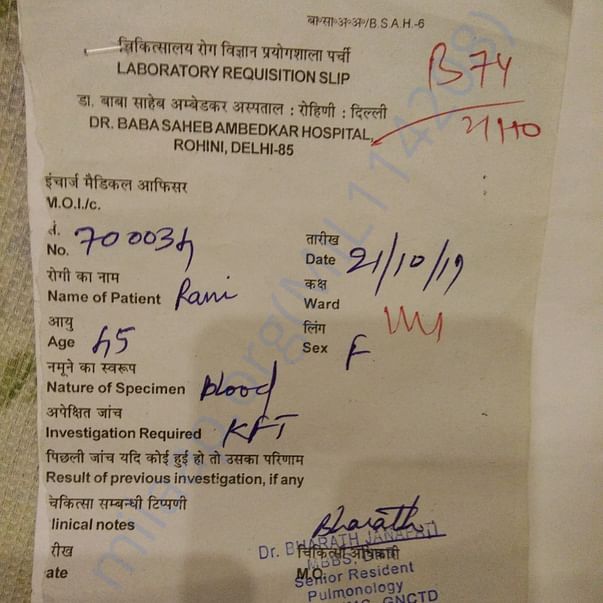 बा॰सा॰अ॰अ॰/B.S.A.H.-6
चिकित्सालय रोग विज्ञान प्रयोगशाला पर्ची
LABORATORY REQUISITION SLIP
B 74
21/10
डा. बाबा साहेब अम्बेडकर अस्पताल : रोहिणी : दिल्ली
DR. BABA SAHEB AMBEDKAR HOSPITAL,
ROHINI, DELHI-85
इंचार्ज मैडिकल आफिसर
M.O.I./c.
सं.
No. 700034
तारीख
Date 21/10/19
रोगी का नाम
Name of Patient Rani
कक्ष
Ward
आयु
Age 45
लिंग
Sex F
नमूने का स्वरूप
Nature of Specimen Blood
अपेक्षित जांच
Investigation Required KFT
पिछली जांच यदि कोई हुई हो तो उसका परिणाम
Result of previous investigation, if any
चेकित्सा सम्बन्धी टिप्पणी
linical notes
Bharath
Dr. BHARATH JANAPATI
रीख
चिकित्सा अधिकारी
MBBS,
ate
M.O.
Senior Resident
Pulmonology
GNCTD
milaap.org(MIL114208)